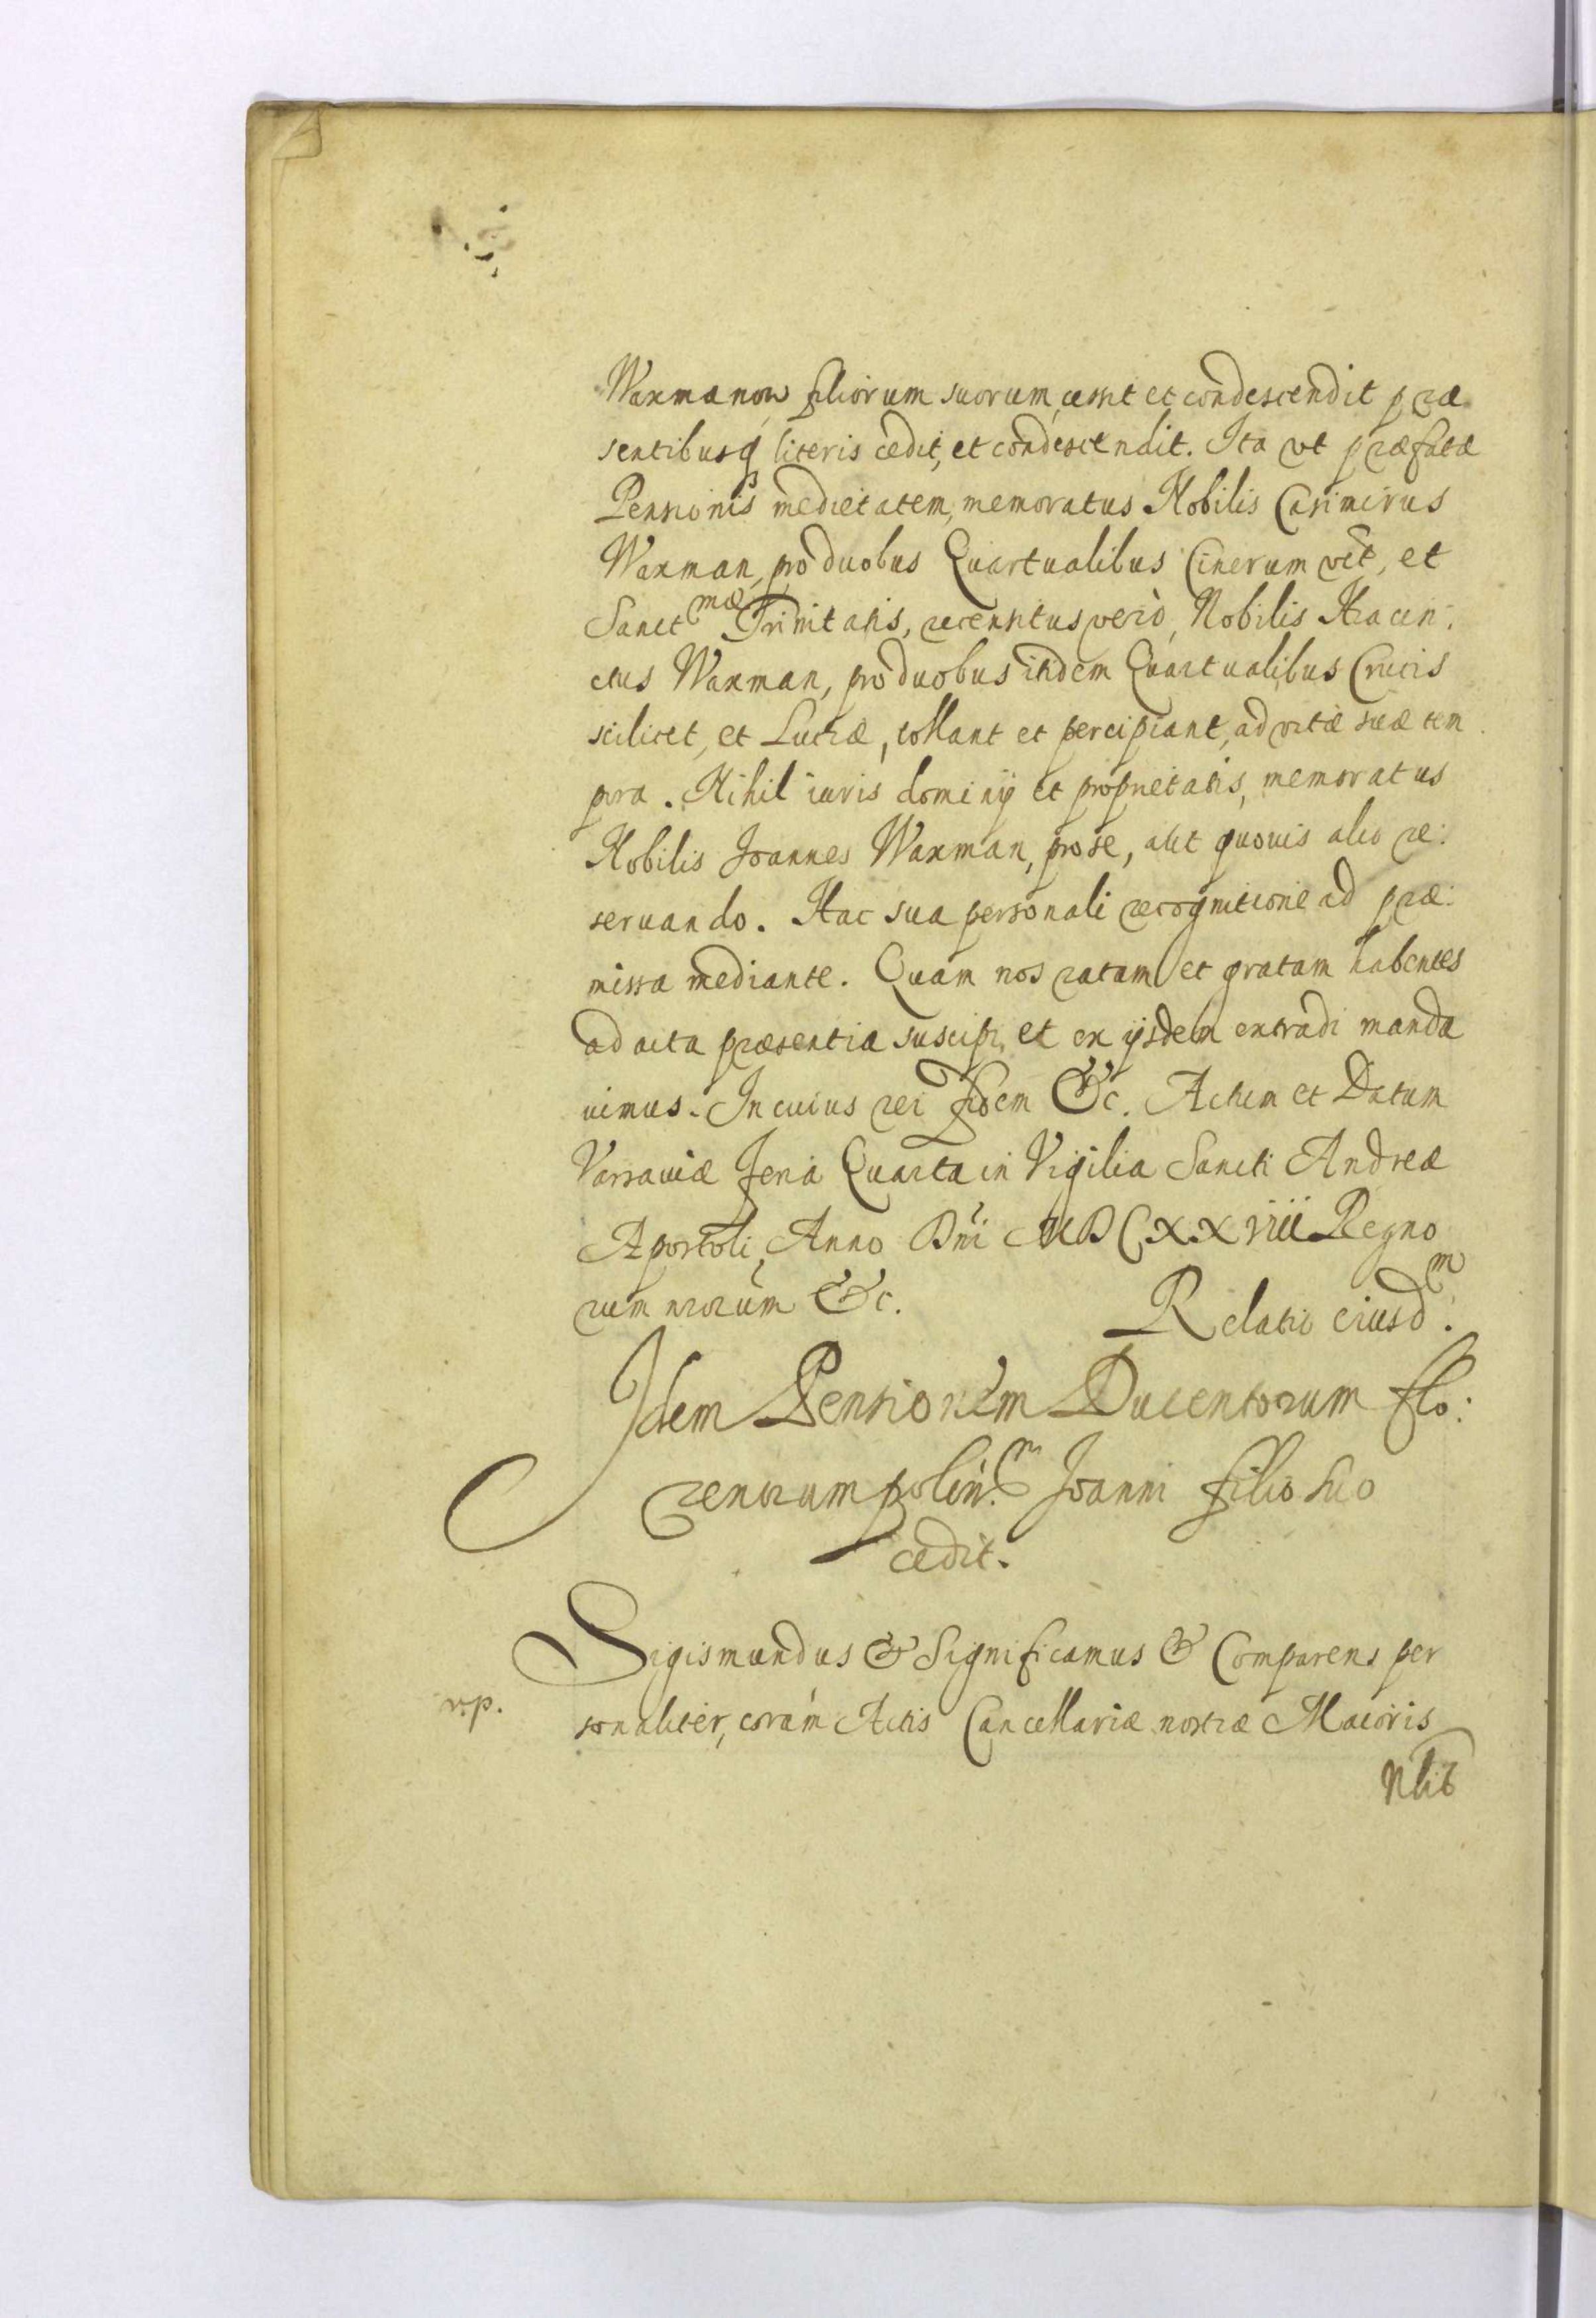 Waxmanow filiorum suorum, cessit et condescendit præ
sentibusq3 literis cedit, et condescendit. Ita vt præfatæ
Pensionis medietatem, memoratus Nobilis Casimirus
Waxman, pro duobus Quartualibus Cinerum vět, et
Sanct mæ Trinitatis, recensitus verò, Nobilis Hiacin:
ctus Waxman, pro duobus itidem Quartualibus Crucis
scilicet, et Luciæ, tollant et percipiant, ad vitæ suæ tem
pora. Nihil iuris dominij et proprietatis, memoratus
Nobilis Joannes Waxman, pro se, aut quouis alio re:
seruando. Hac sua personali recognitione ad præ:
missa mediante. Quam nos ratam et gratam habentes
ad acta præsentia suscipi, et ex ijsdem extradi manda
uimus. In cuius rei fidem &c. Actum et Datum
Varsauiæ Feria Quarta in Vigilia Sancti Andreæ
Apostoli, Anno Dni MDCXXVIII Regno
rum nrorum &c. Relatio eiusd m.
Idem Pensionem Ducentorum flo:
renorum polin. m Joanni filio suo
cedit.
Sigismundus & Significamus & Comparens per
sonaliter, coram Actis Cancellariæ nostræ Maioris
rp.
Nlib